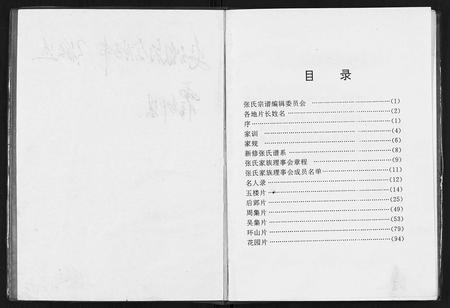 目录
张氏宗谱编辑委员会 ……(1)
各地片长姓名 ……(2)
序 ……(1)
家训 ……(4)
家规 ……(6)
新修张氏谱系 ……(8)
张氏家族理事会章程 ……(9)
张氏家族理事会成员名单 ……(11)
名人录 ……(12)
五楼片 ……(14)
后郢片 ……(25)
周集片 ……(49)
吴集片 ……(53)
环山片 ……(79)
花园片 ……(94)